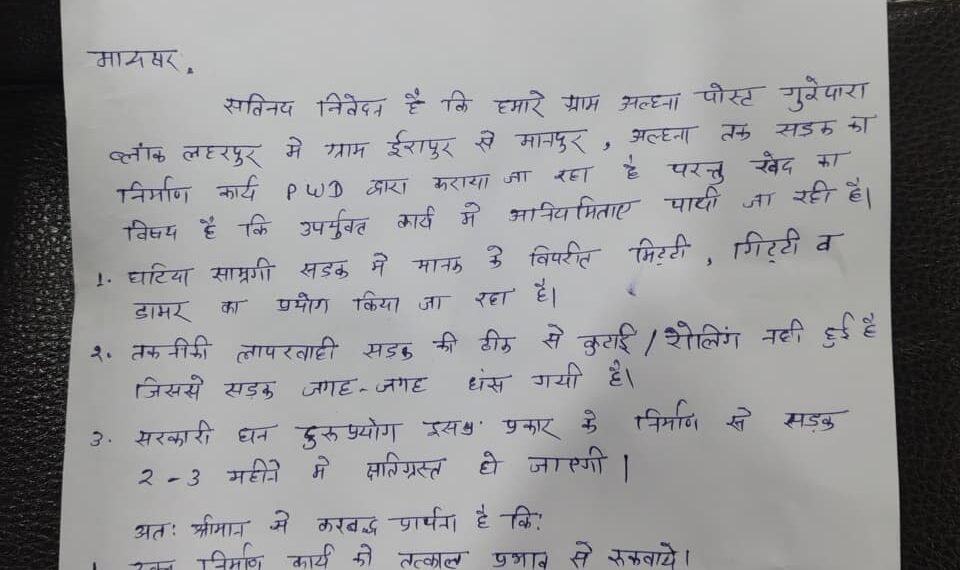 मान्यवर,
सविनय निवेदन है कि हमारे ग्राम अल्हना पोस्ट गुरेपारा
ब्लॉक लहरपुर मे ग्राम ईरापुर से मानपुर, अल्हना तक सड़क का
निर्माण कार्य PWD द्वारा कराया जा रहा है परन्तु खेद का
विषय है कि उपर्युक्त कार्य मे अनियमिताए पायी जा रही है।
1. घटिया सामग्री सड़क मे मानक के विपरीत मिट्टी, गिट्टी व
डामर का प्रयोग किया जा रहा है।
2. तकनीकी लापरवाही सड़क की ठीक से कुटाई / रोलिंग नही हुई है
जिससे सड़क जगह-जगह धंस गयी है।
3. सरकारी धन दुरुप्रयोग इस प्रकार के निर्माण से सड़क
2-3 महीने मे क्षतिग्रस्त हो जाएगी।
अतः श्रीमान से करबद्ध प्रार्थना है कि:
1 उक्त निर्माण कार्य को तत्काल प्रभाव से रुकवाये।